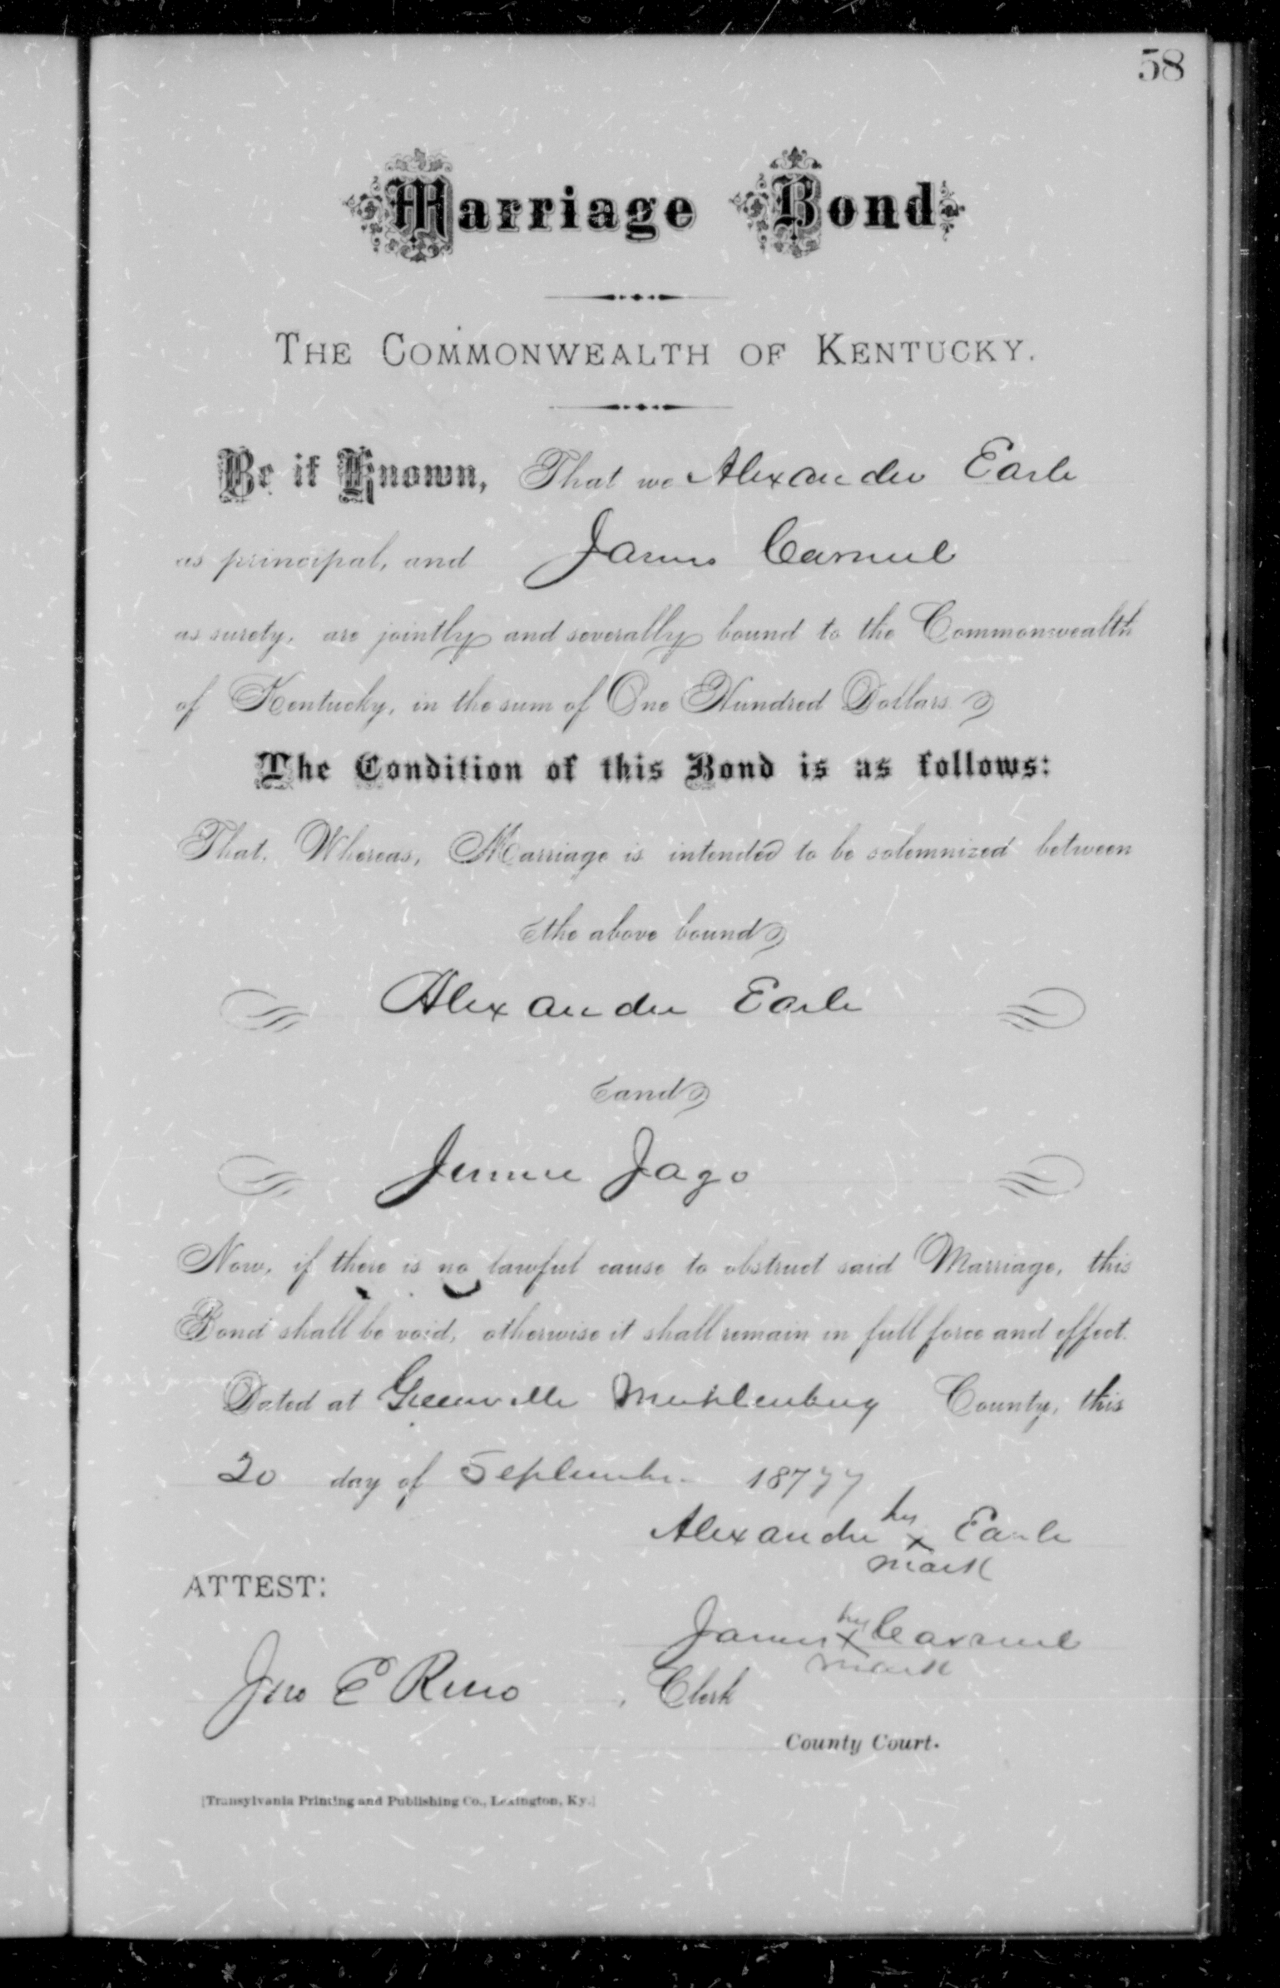 58
Marriage Bond
THE COMMONWEALTH OF KENTUCKY.
Be it Known, That we Alexander Earle
as principal, and James Carmul
as surety, are jointly and severally bound to the Commonwealth
of Kentucky, in the sum of One Hundred Dollars
The Condition of this Bond is as follows:
That, Whereas, Marriage is intended to be solemnized between
the above bound
Alexander Earle
and
Jennie Jago
Now, if there is no lawful cause to obstruct said Marriage, this
Bond shall be void, otherwise it shall remain in full force and effect.
Dated at Greenville Muhlenburg County, this
20 day of September 1877
his
Alexander x Earle
mark
ATTEST:
his
James x Carmul
mark
Jno E Reno, Clerk
County Court.
[Transylvania Printing and Publishing Co., Lexington, Ky.]